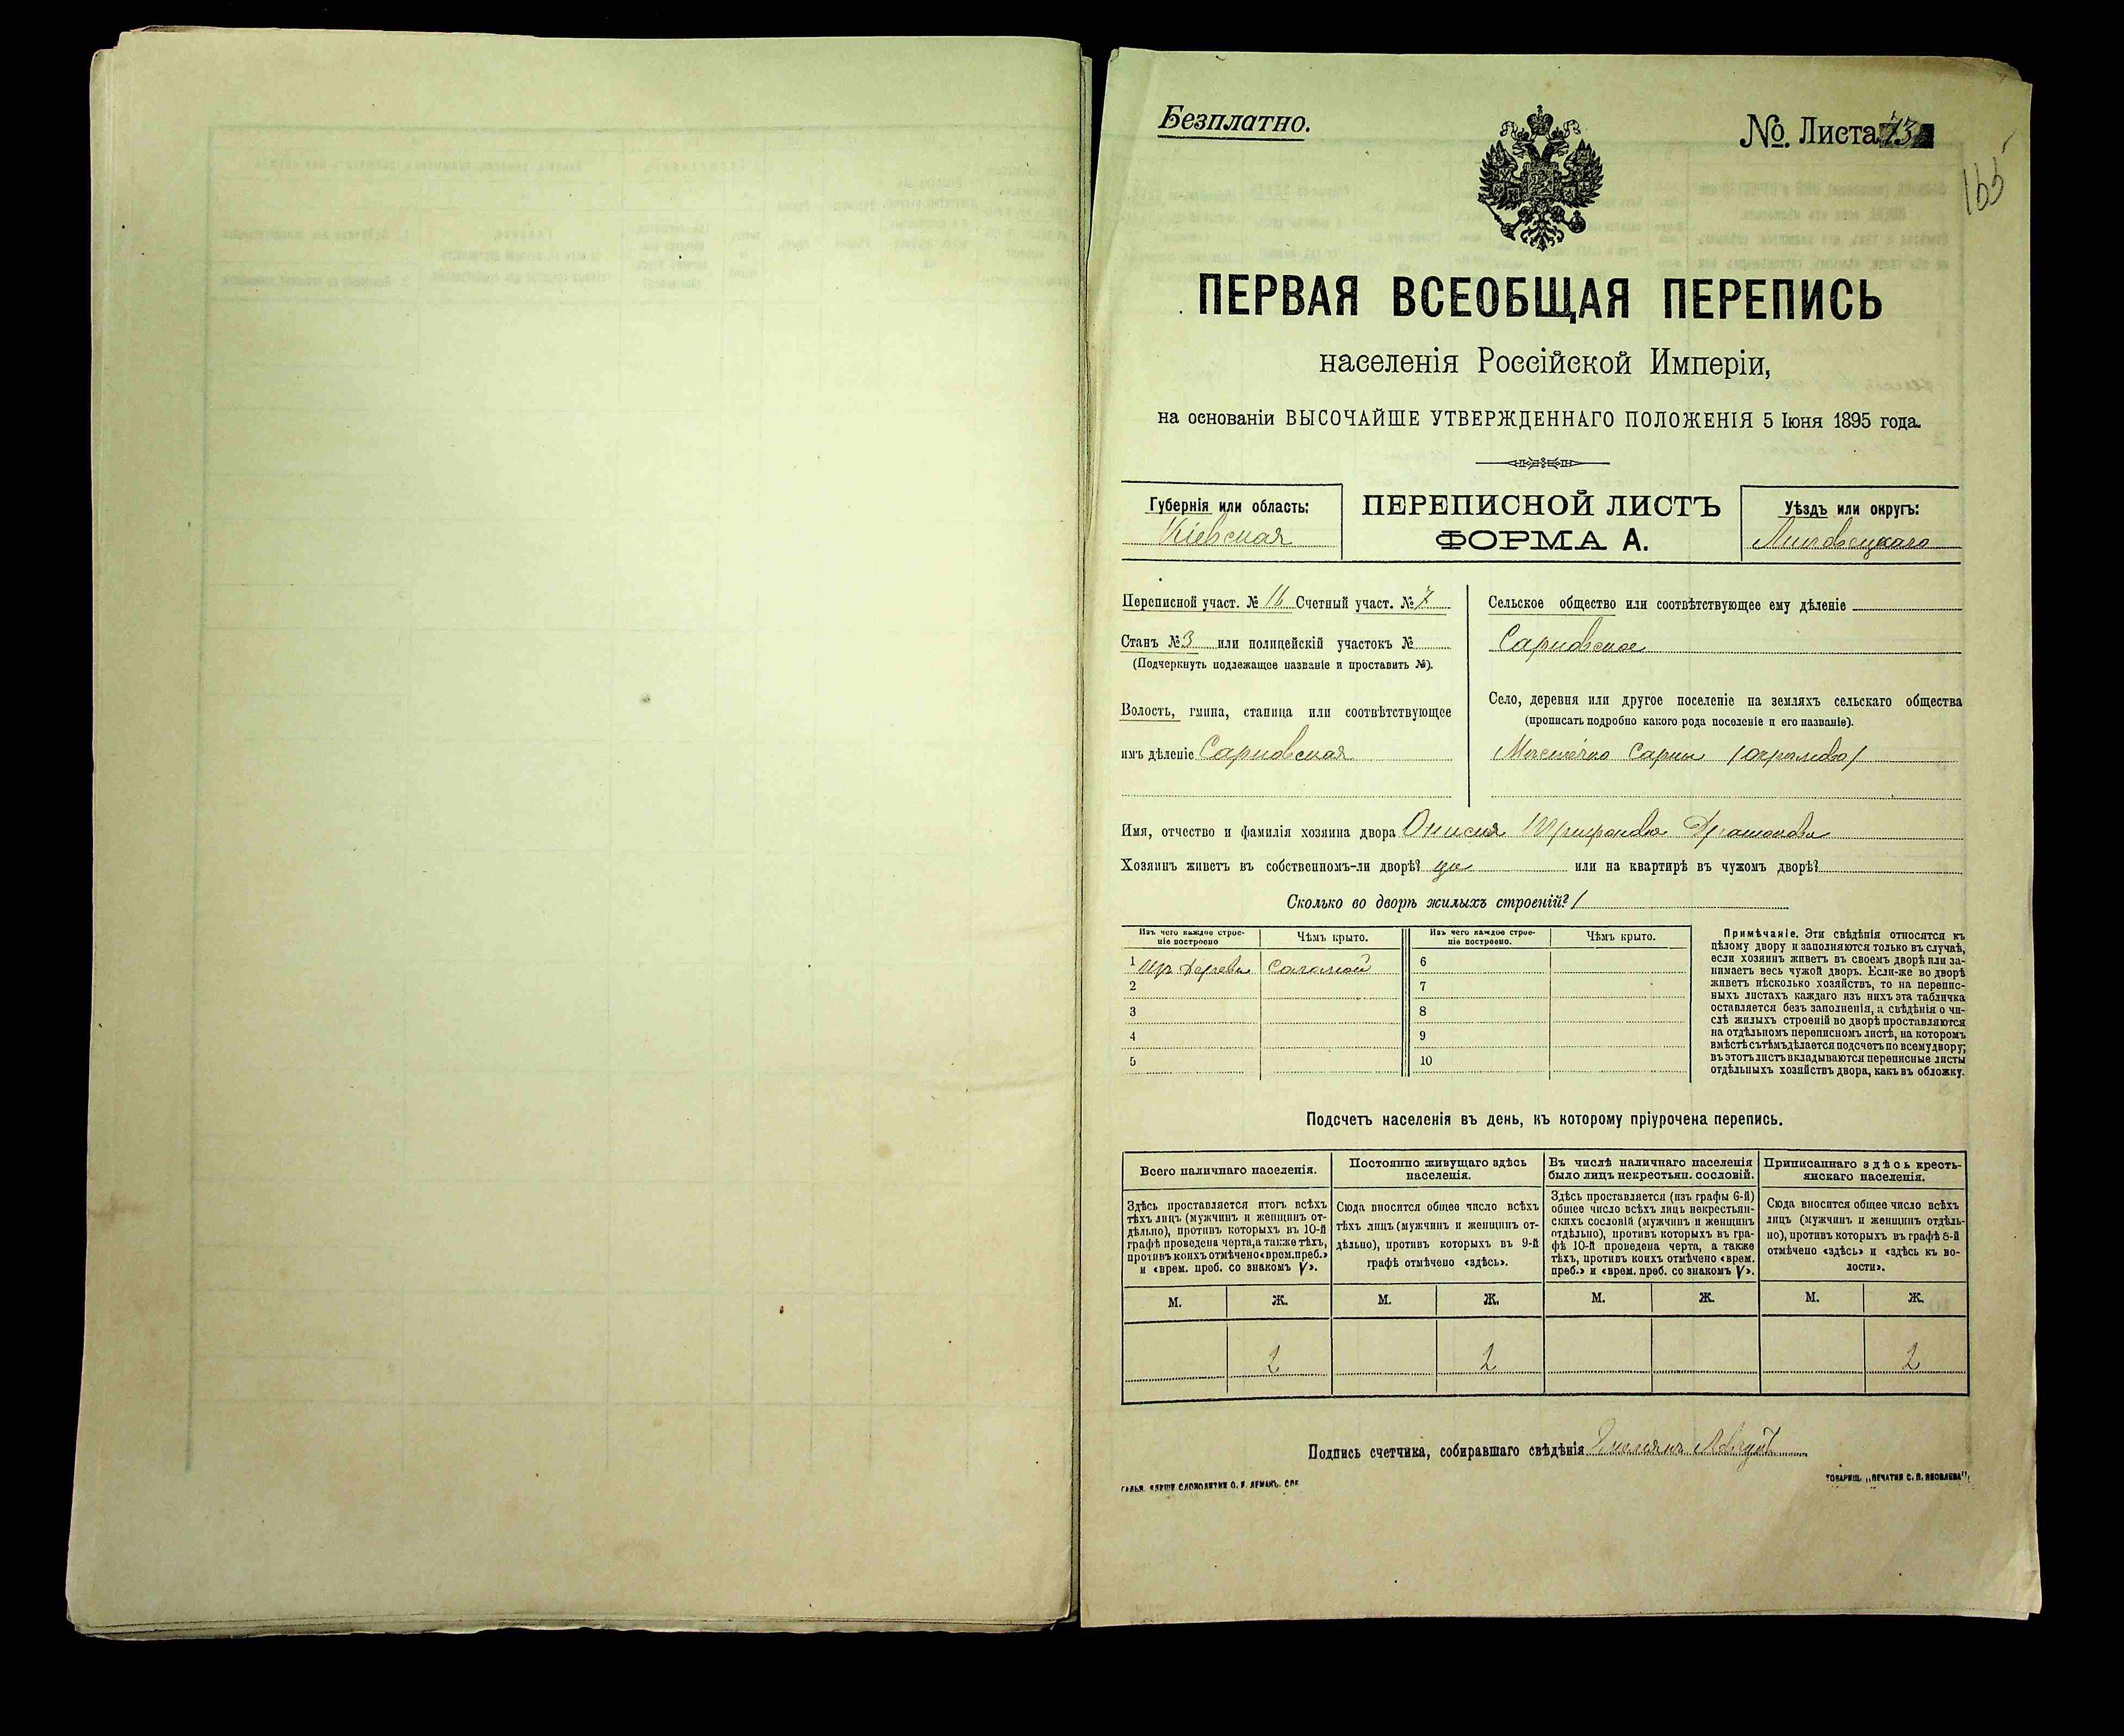 Безплатно.
№ Листа 73
165
ПЕРВАЯ ВСЕОБЩАЯ ПЕРЕПИСЬ
населенія Россійской Имперіи,
на основаніи ВЫСОЧАЙШЕ УТВЕРЖДЕННАГО ПОЛОЖЕНІЯ 5 Іюня 1895 года.
Губернія или область:
Кіевская
ПЕРЕПИСНОЙ ЛИСТЪ
ФОРМА А.
Уѣздъ или округъ:
Липовецкаго
Переписной участ. № 16 Счетный участ. № 7
Станъ № 3 или полицейскій участокъ №
(Подчеркнуть подлежащее названіе и проставить №).
Волость, гмина, станица или соотвѣтствующее
имъ дѣленіе Сарновская
Сельское общество или соотвѣтствующее ему дѣленіе
Сарновское
Село, деревня или другое поселеніе на земляхъ сельскаго общества
(прописать подробно какого рода поселеніе и его названіе).
Мѣстечко Сарны
Имя, отчество и фамилія хозяина двора Онисія Трифонова
Хозяинъ живетъ въ собственномъ-ли дворѣ? да или на квартирѣ въ чужомъ дворѣ?
Сколько во дворѣ жилыхъ строеній? 1
Изъ чего каждое строе-
ніе построено
Чѣмъ крыто.
Изъ чего каждое строе-
ніе построено.
Чѣмъ крыто.
1 изъ дерева соломой
2
3
4
5
6
7
8
9
10
Примѣчаніе. Эти свѣдѣнія относятся къ
цѣлому двору и заполняются только въ случаѣ,
если хозяинъ живетъ въ своемъ дворѣ или за-
нимаетъ весь чужой дворъ. Если-же во дворѣ
живетъ нѣсколько хозяйствъ, то на перепис-
ныхъ листахъ каждаго изъ нихъ эта табличка
оставляется безъ заполненія, а свѣдѣнія о чи-
слѣ жилыхъ строеній во дворѣ проставляются
на отдѣльномъ переписномъ листѣ, на которомъ
вмѣстѣ съ тѣмъ дѣлается подсчетъ по всему двору;
въ этотъ листъ вкладываются переписные листы
отдѣльныхъ хозяйствъ двора, какъ въ обложку.
Подсчетъ населенія въ день, къ которому пріурочена перепись.
Всего наличнаго населенія.
Здѣсь проставляется итогъ всѣхъ
тѣхъ лицъ (мужчинъ и женщинъ от-
дѣльно), противъ которыхъ въ 10-й
графѣ проведена черта, а также тѣхъ,
противъ коихъ отмѣчено «врем. преб.»
и «врем. преб. со знакомъ V».
Постоянно живущаго здѣсь
населенія.
Сюда вносится общее число всѣхъ
тѣхъ лицъ (мужчинъ и женщинъ от-
дѣльно), противъ которыхъ въ 9-й
графѣ отмѣчено «здѣсь».
Въ числѣ наличнаго населенія
было лицъ некрестьян. сословій.
Здѣсь проставляется (изъ графы 6-й)
общее число всѣхъ лицъ некрестьян-
скихъ сословій (мужчинъ и женщинъ
отдѣльно), противъ которыхъ въ гра-
фѣ 10-й проведена черта, а также
тѣхъ, противъ коихъ отмѣчено «врем.
преб.» и «врем. преб. со знакомъ V».
Приписаннаго здѣсь кресть-
янскаго населенія.
Сюда вносится общее число всѣхъ
лицъ (мужчинъ и женщинъ отдѣль-
но), противъ которыхъ въ графѣ 8-й
отмѣчено «здѣсь» и «здѣсь къ во-
лости».
М. Ж. М. Ж. М. Ж. М. Ж.
2 2 2
Подпись счетчика, собиравшаго свѣдѣнія
ТОВАРИЩ. „ПЕЧАТНЯ С. П. ЯКОВЛЕВА"